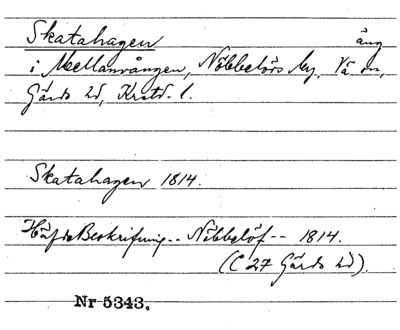 Skatahagen äng
i Mellanvången, Nöbbelövs by, Vä sn,
Gärds hd, Krstd. l.
Skatahagen 1814.
HäfdeBeskrifning -- Nöbbelöf -- 1814.
(C 27 Gärds hd).
Nr 5343.